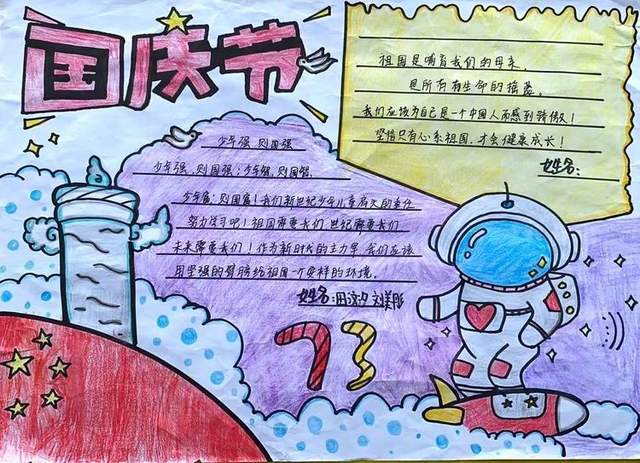 国庆节
祖国是哺育我们的母亲,
是所有生命的摇篮。
我们应该为自己是一个中国人而感到骄傲!
坚信只有心系祖国,才会健康成长!
姓名:
少年强,则国强
少年强,则国强;少年强,则国强。
少年富,则国富!我们新世纪少年儿童肩负的重任
努力学习吧!祖国需要我们,世纪需要我们
未来需要我们!作为新时代的主力军,我们应该
用坚强的臂膀给祖国一个安祥的环境。
姓名:田 夕 刘美彤
73